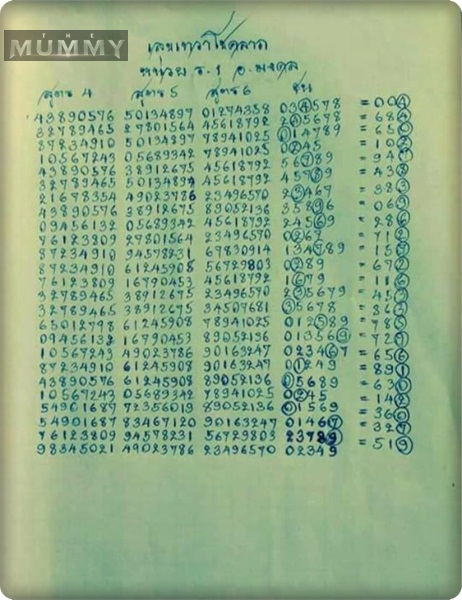 THE
MUMMY
เลขเทวาโชคลาภ
หน่วย ร.1 อ.มงคล
สูตร 4 สูตร 5 สูตร 6 ชน
43890576 50134897 01274358 034578 = 004
32789465 27801564 45618792 245678 = 684
87234910 50134897 78941025 014789 = 650
10567243 05689342 78941025 0245
43890576 38912675 45618792 56789
32789465 50134897 45618792 45789 = 438
21678354 49023786 23496570 23467 = 383
43890576 38912675 89052136 35896 = 069
09456132 05689342 45618792 24569 = 286
76123809 27801564 23496570 0267 = 712
87234910 94578231 67830914 134789 = 157
87234910 61245908 56729803 0289 = 672
76123809 16790453 45618792 1679 = 116
32789465 38912675 23496570 235679 = 453
32789465 38912675 34507681 35678 = 863
65012798 61245908 78941025 012589 = 785
09456132 16790453 89052136 013569 = 729
10567243 49023786 90163247 023467 = 656
87234910 61245908 90163247 01249 = 891
43890576 61245908 89052136 05689 = 630
10567243 05689342 78941025 0245 = 142
54901687 72356019 89052136 01569 = 360
54901687 83467120 90163247 01467 = 327
76123809 94578231 56729803 23789 = 519
98345021 49023786 23496570 02349